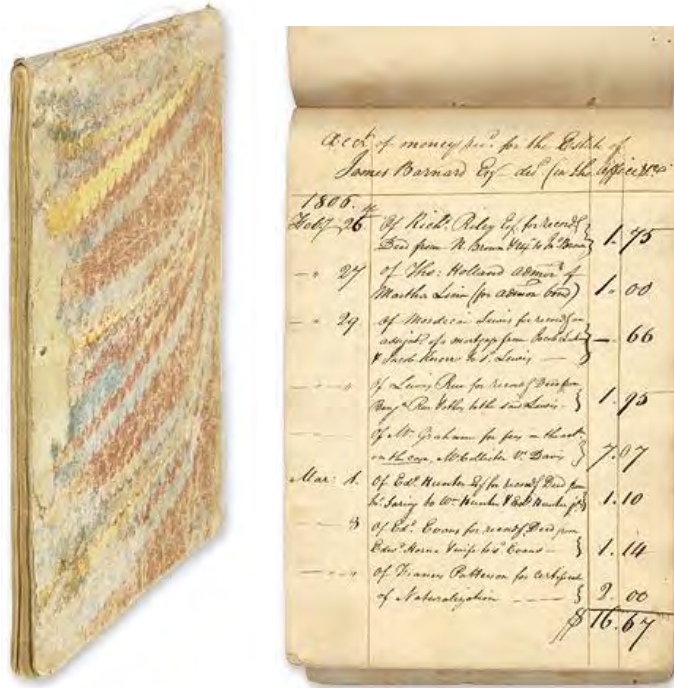 Acct. of money rec. for the Estate of
James Barnard Esq. dec. (in the office &c.
1806.
Feby 26 Of Richd. Riley Esq. for record.g 1. 75
Deed from N. Brown & ux. to Brown
— " 27 of Tho: Holland admor. of
Martha Linn (for admon bond) 1. 00
— " 29 of Mordecai Lewis for record.g an
assignt. of a mortgage from Jacob —. 66
& Jacob to s. Lewis —
of Lewis Rue for record.g Deed from
Benj.a Rue & to the said Lewis — 1. 95
Of Mr. Graham for fees on the
in the case, McCollister Vs. Davis 7. 07
Mar: 1. Of Edd. Hunter Esq. for record.g Deed from
to Wm. Hunter & Edd. Hunter 1. 10
— 8 Of Ed. Evans for record.g Deed from
Edwd. Horne & wife to s. Evans — 1. 14
Of Francis Patterson for certificate
of Naturalization — 2. 00
$ 16. 67